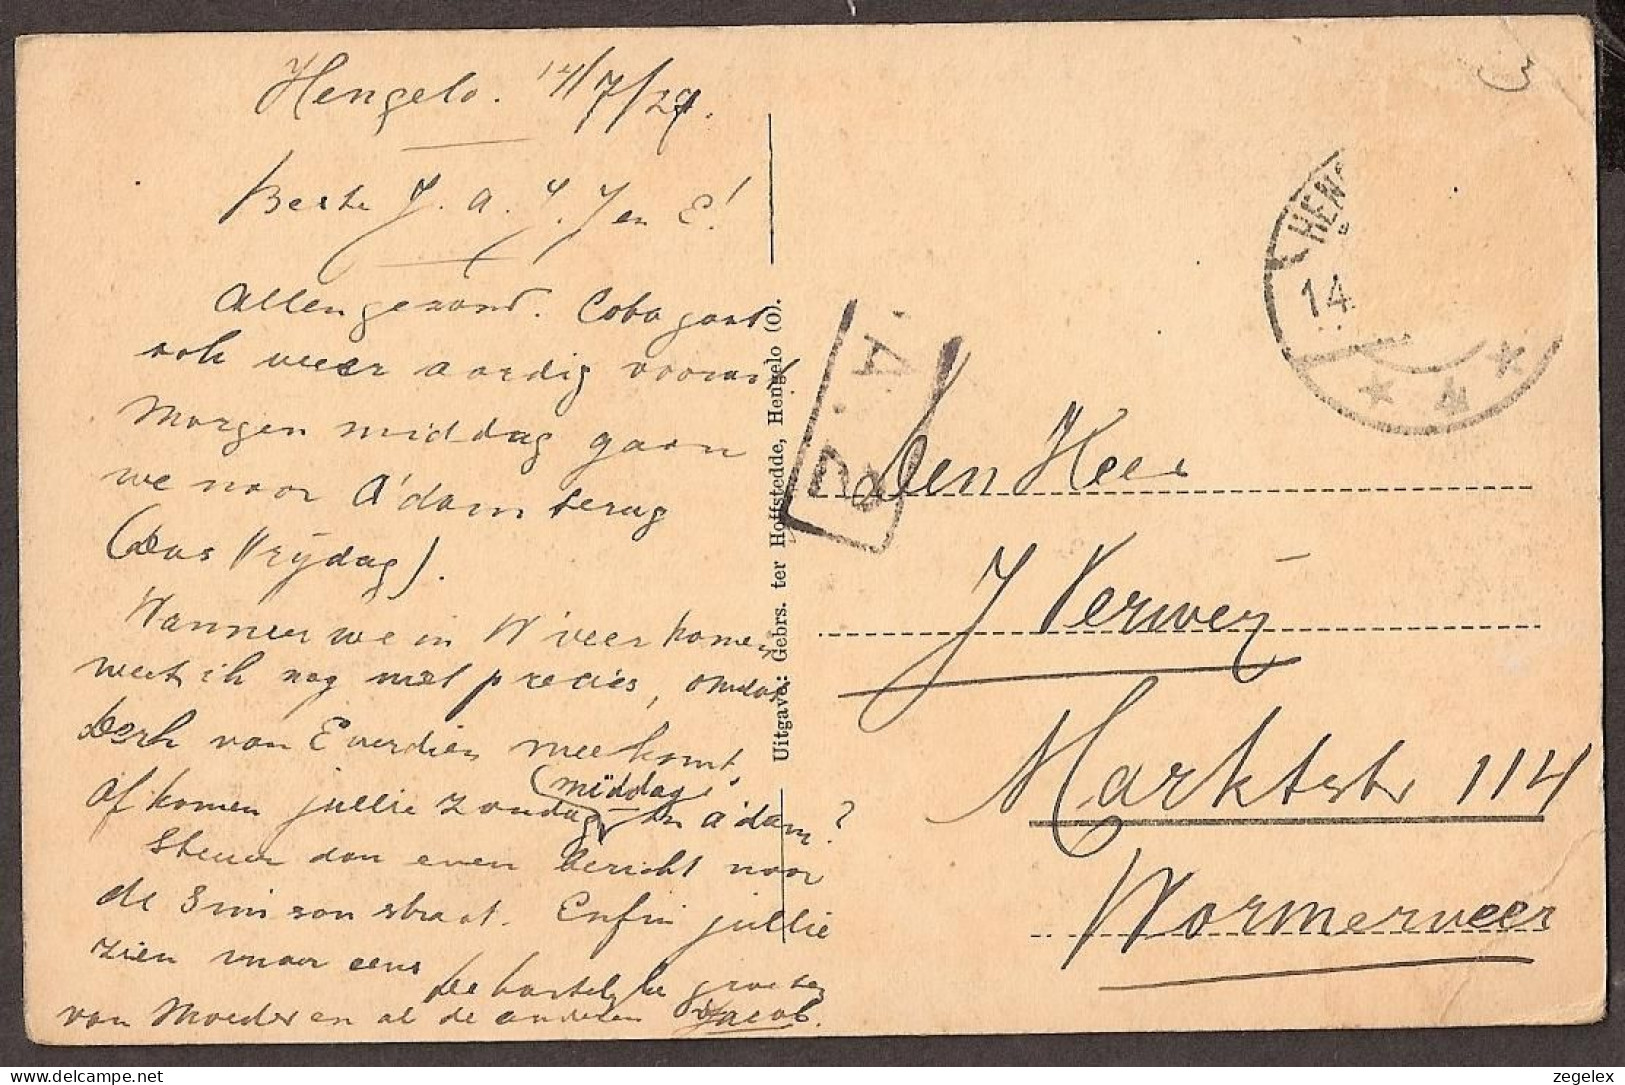 Hengelo. 14/7/27.
Beste J. A. Y. J en E!
Allen gezond. Coba gaat
ook weer aardig vooruit
Morgen middag gaan
we naar A'dam terug
(dus Vrijdag).
Wanneer we in W'veer komen
weet ik nog niet precies, omdat
Derk van Everdien meekomt,
(middag)
of komen jullie zondag in A'dam?
Stuur dan even bericht naar
de Simsonstraat. Enfin jullie
zien maar eens
de hartelijke groeten
van Moeder en al de anderen Jacob.
Uitgave: Gebrs. ter Hoffstedde, Hengelo (O).
HEN
14
4
3
Den Heer
J Verweij
Marktstr 114
Wormerveer
zegelex